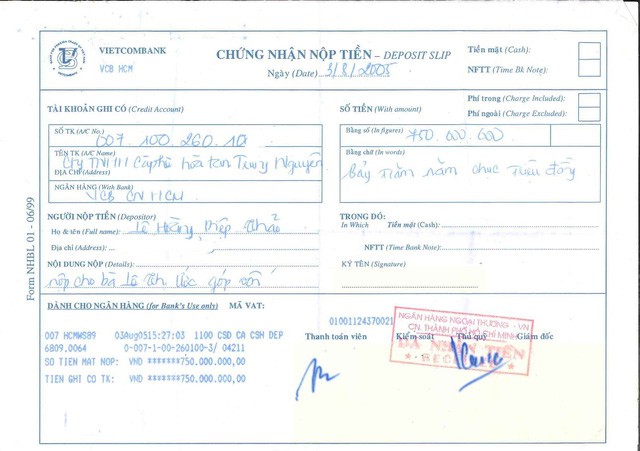 VIETCOMBANK
VCB HCM
CHỨNG NHẬN NỘP TIỀN – DEPOSIT SLIP
Ngày (Date) 3/8/2005
Tiền mặt (Cash):
NFTT (Time Bk Note):
Phí trong (Charge Included):
Phí ngoài (Charge Excluded):
TÀI KHOẢN GHI CÓ (Credit Account)
SỐ TK (A/C No.) 007.100.260.10
TÊN TK (A/C Name)
Cty TNHH Càphê hòa tan Trung Nguyên
ĐỊA CHỈ (Address)
NGÂN HÀNG (With Bank)
VCB CN HCM
SỐ TIỀN (With amount)
Bằng số (In figures) 750.000.000
Bằng chữ (In words)
Bảy trăm năm chục triệu đồng
NGƯỜI NỘP TIỀN (Depositor)
Họ & tên (Full name): Lê Hoàng Diệp Thảo
Địa chỉ (Address):
NỘI DUNG NỘP (Details):
nộp cho bà Lê Thị Ước góp vốn
TRONG ĐÓ:
In Which Tiền mặt (Cash):
NFTT (Time Bank Note):
KÝ TÊN (Signature)
Form NHBL 01 - 06/99
DÀNH CHO NGÂN HÀNG (for Bank's Use only) MÃ VAT:
01001124370021
007 HCMWS89 03Aug0515:27:03 1100 CSD CA CSH DEP
6809.0064 0-007-1-00-260100-3/ 04211
SO TIEN MAT NOP: VND *******750.000.000,00
TIEN GHI CO TK: VND *******750.000.000,00
Thanh toán viên Kiểm soát Thủ quỹ Giám đốc
NGÂN HÀNG NGOẠI THƯƠNG - VN
CN. THÀNH PHỐ HỒ CHÍ MINH
ĐÃ NHẬN TIỀN